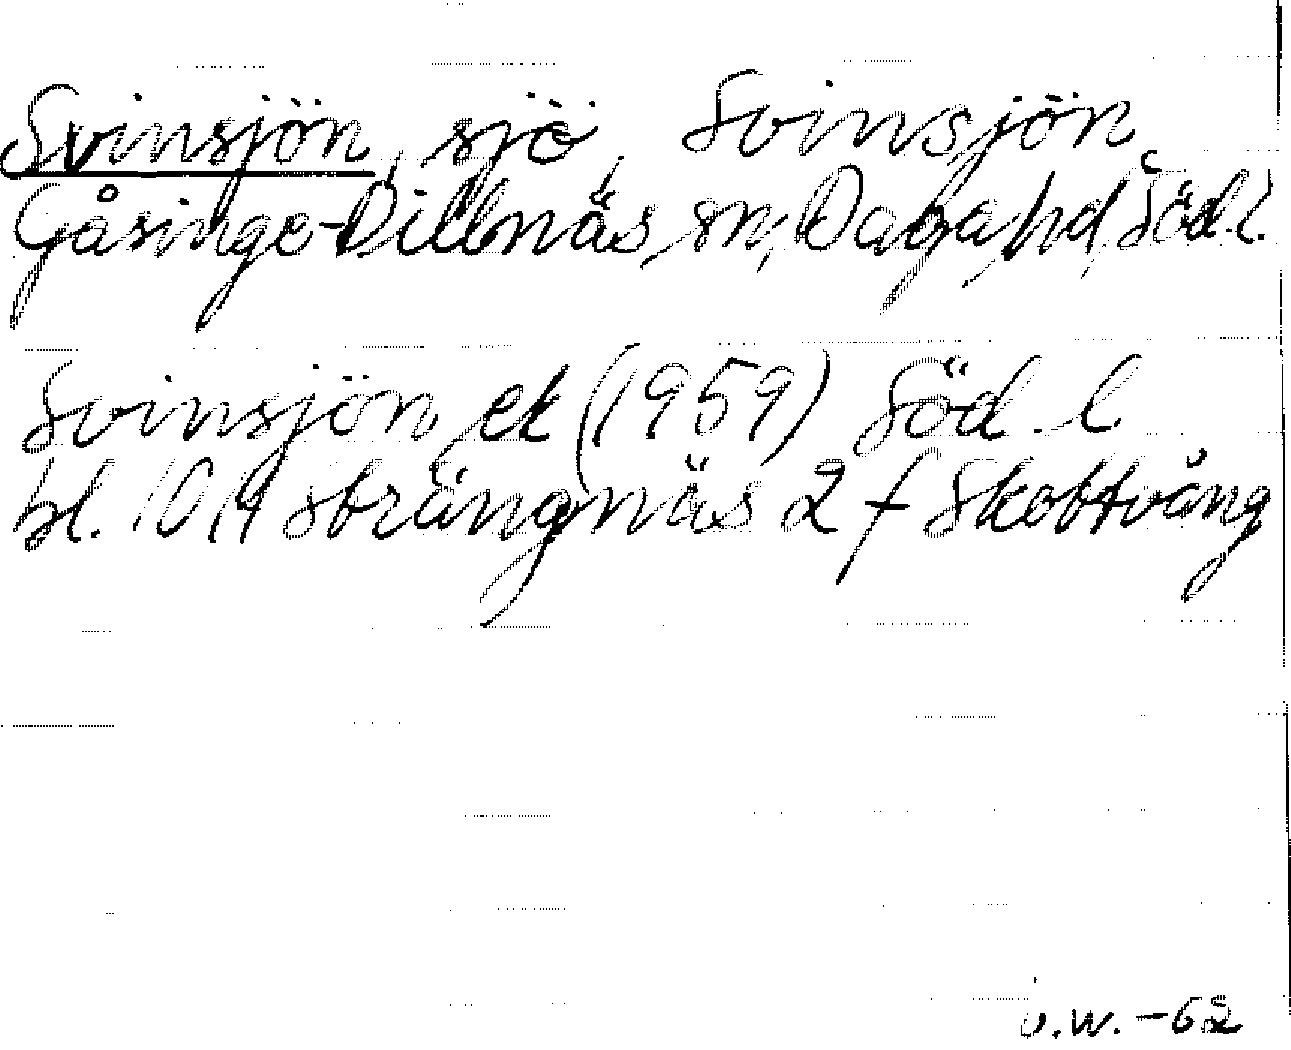 Svinsjön, sjö, Svinsjön,
Gåsinge-Dillnäs sn, Daga hd, Söd. l.
Svinsjön, ek (1959) Söd. l
bl. 10 H Strängnäs 2 f Skottvång
-62